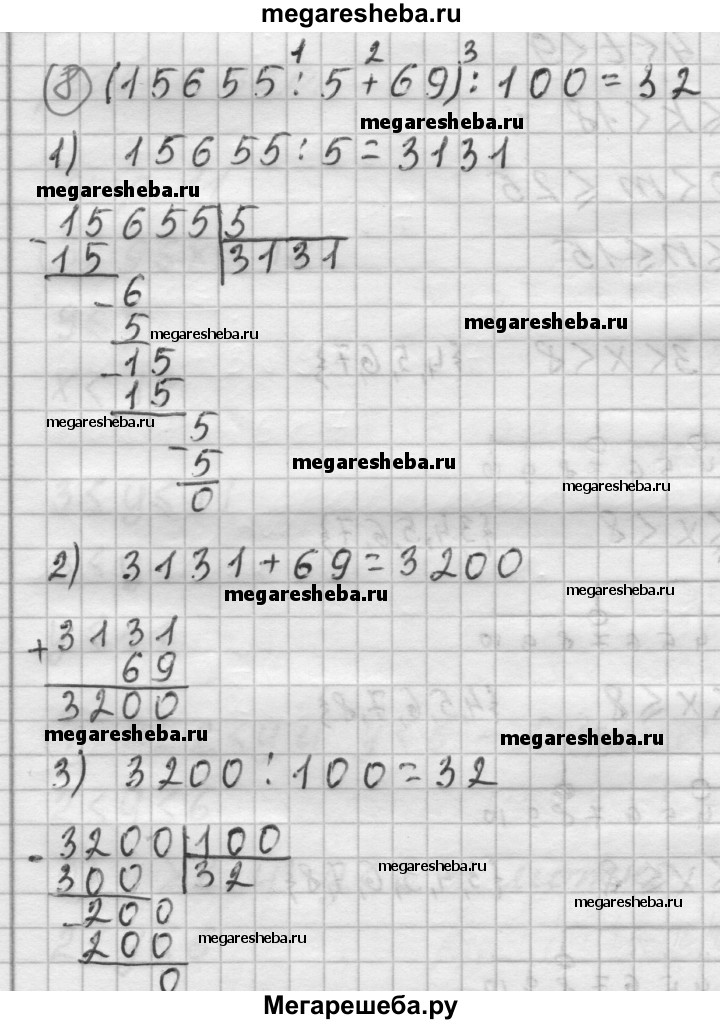 megaresheba.ru
1 2 3
8 (15655:5+69):100=32
megaresheba.ru
1) 15655:5=3131
megaresheba.ru
- 15655 | 5
15 3131
- 6
5 megaresheba.ru megaresheba.ru
- 15
15
megaresheba.ru 5
- 5 megaresheba.ru
0 megaresheba.ru
2) 3131+69=3200
megaresheba.ru megaresheba.ru
+ 3131
69
3200
megaresheba.ru megaresheba.ru
3) 3200:100=32
- 3200 | 100
300 32 megaresheba.ru
- 200 megaresheba.ru
200 megaresheba.ru
0
Мегарешеба.ру